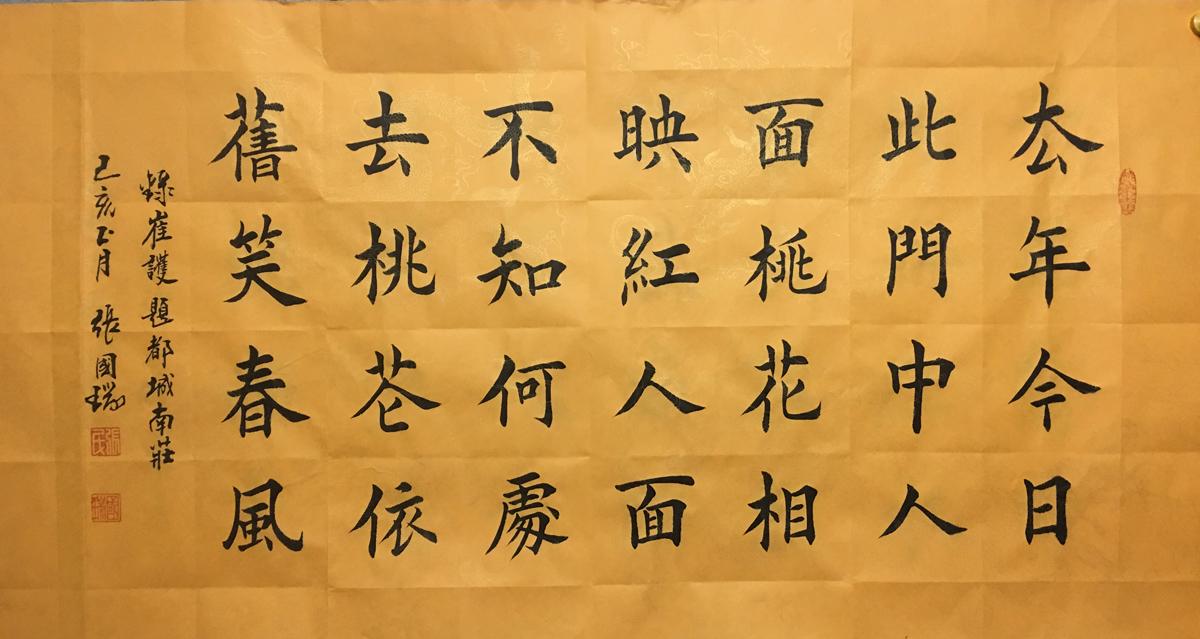 厺年今日
此門中人
面桃花相
映紅人面
不知何處
去桃芲依
舊笑春風
錄崔護題都城南莊
己亥正月 張國